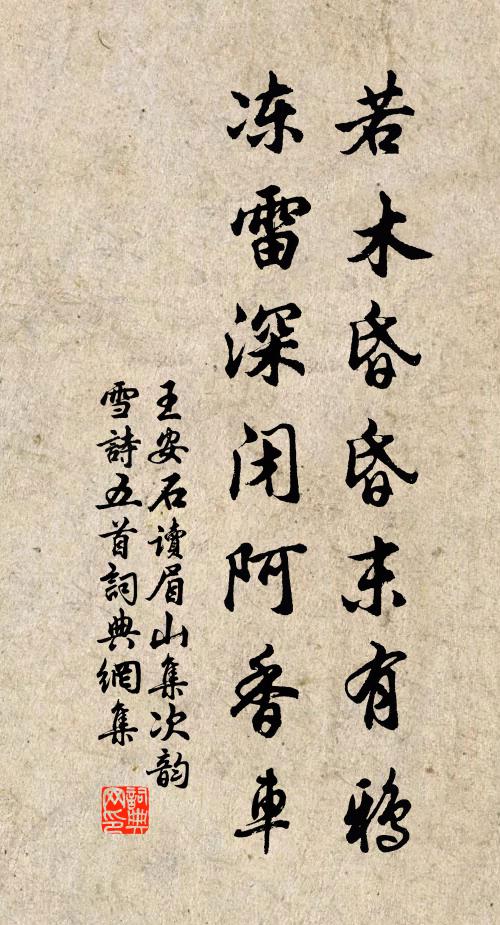 若木昏昏末有鴉
冻雷深闭阿香車
王安石讀眉山集次韵
雪詩五首詞典網集
詞典
网印